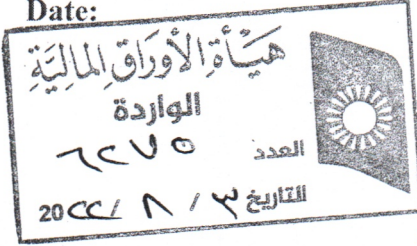 Date:
هيأة الأوراق المالية
الواردة
العدد ٦٢٧٥
التاريخ ٣ / ٨ / 20٢٢